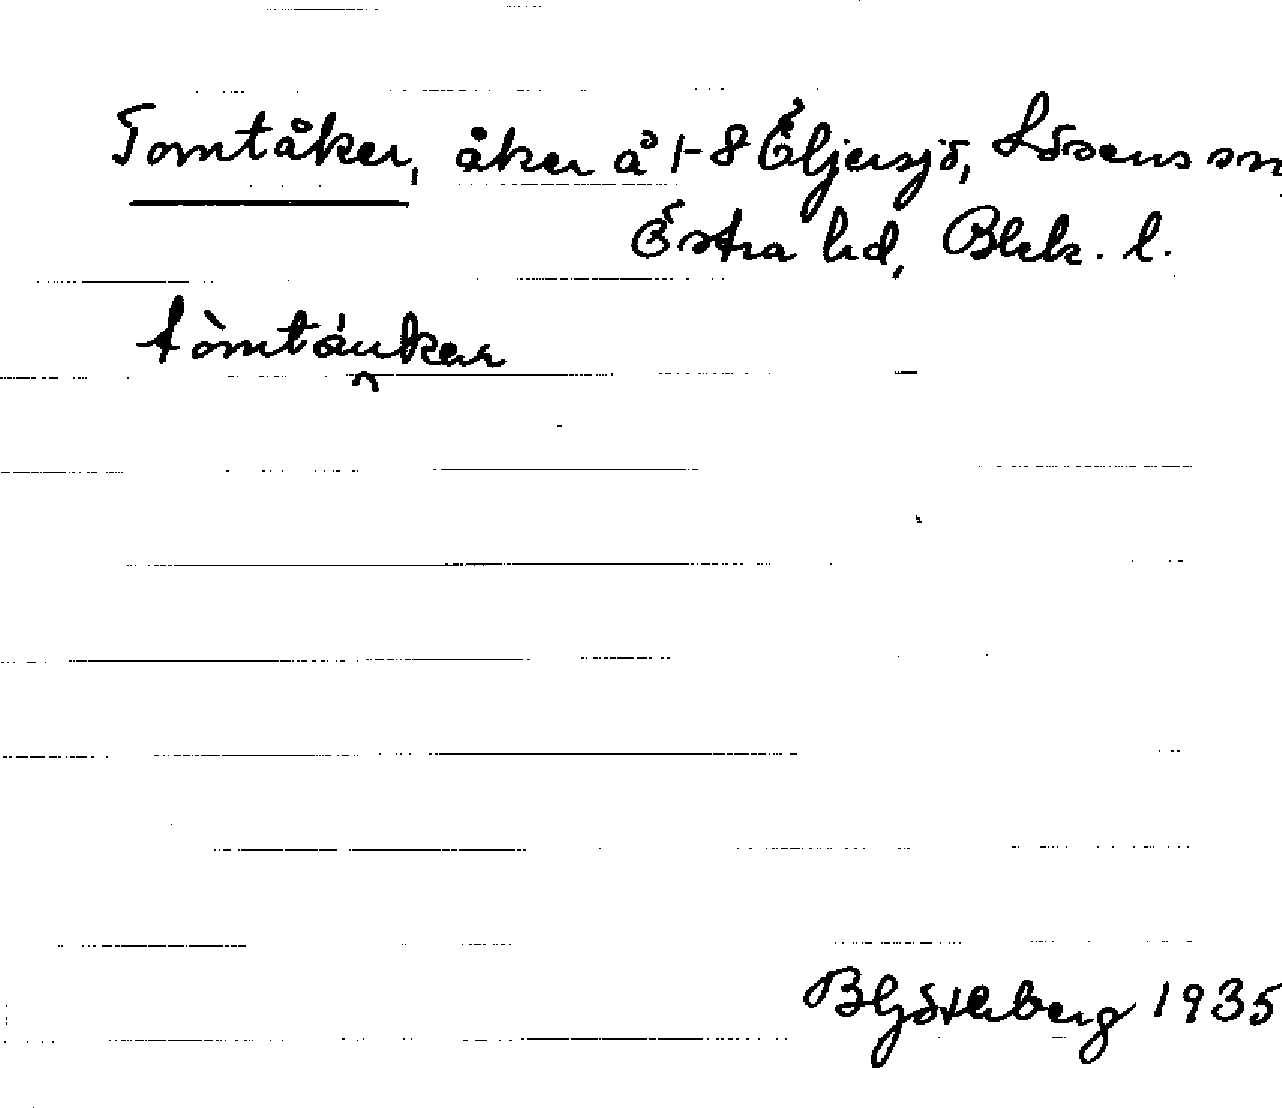 Tomtåker, åker å 1-8 Öljersjö, Lösens sn,
Östra hd, Blek. l.
tòmtáu̯ker
B Göteberg 1935